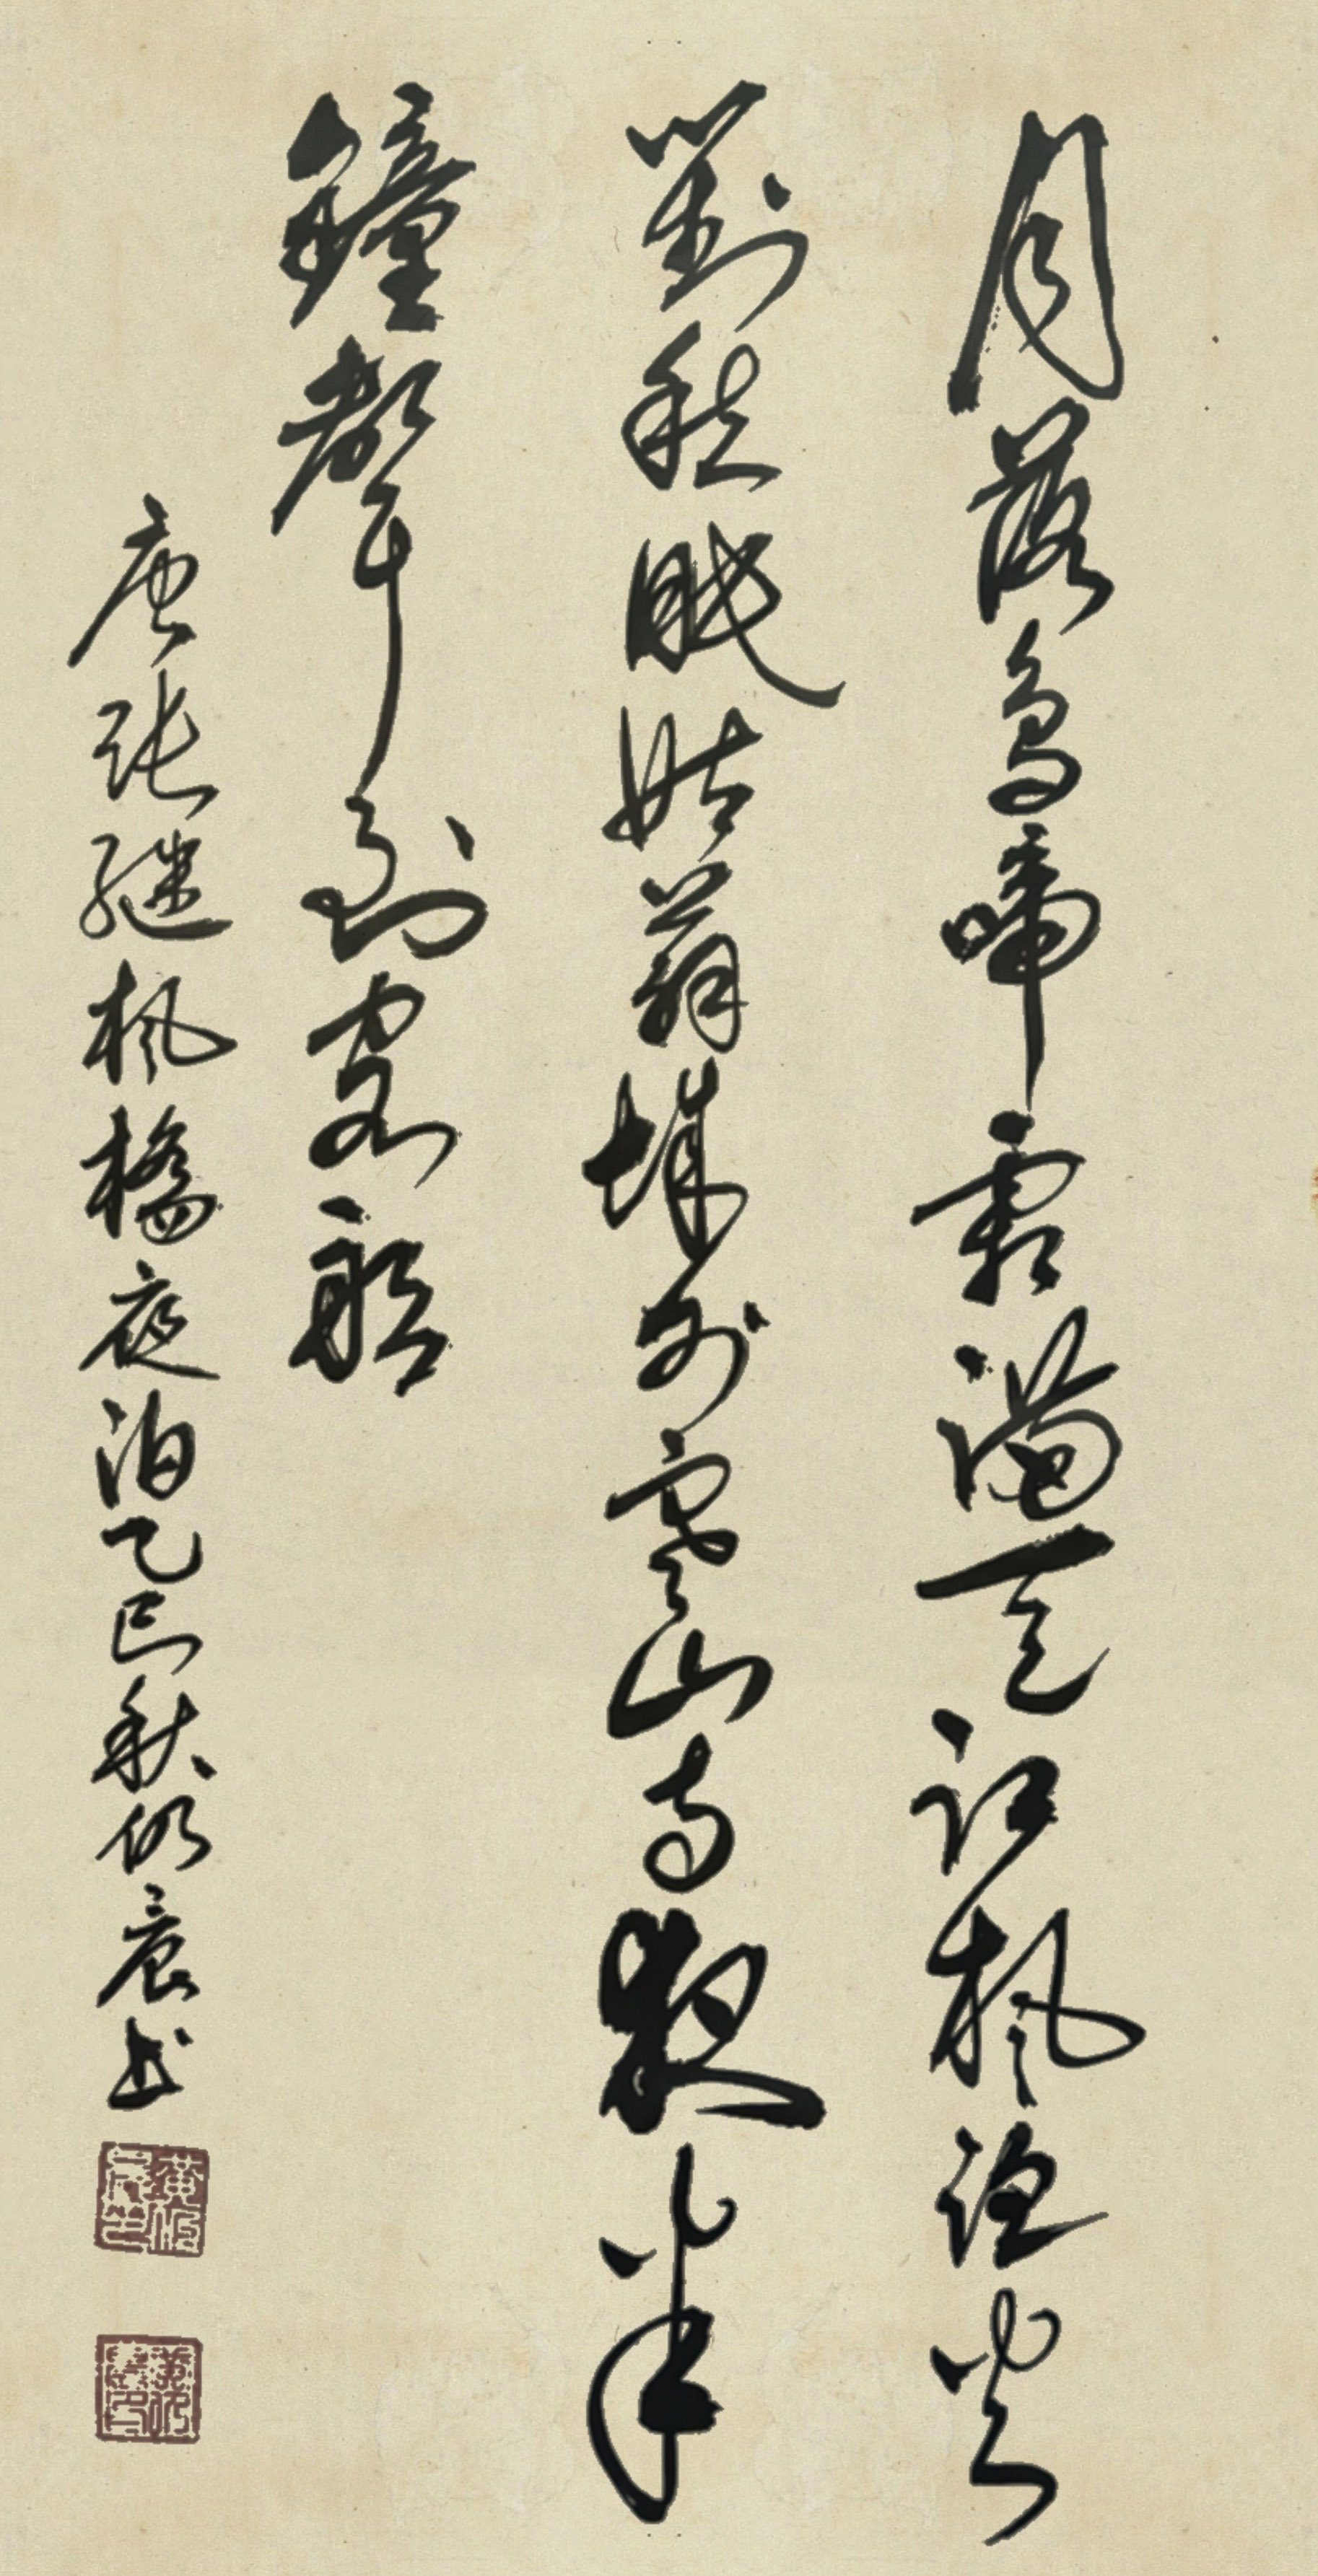 月落烏啼霜滿天江楓漁火
對愁眠姑蘇城外寒山寺夜半
鐘聲到客船
唐張繼楓橋夜泊乙巳秋仍宸书